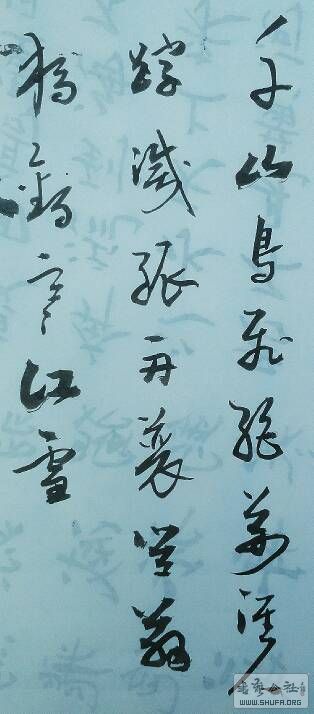 千山鳥飛絕萬徑人
踪滅孤舟蓑笠翁
獨釣寒江雪
書藝公社
WWW.SHUFA.ORG